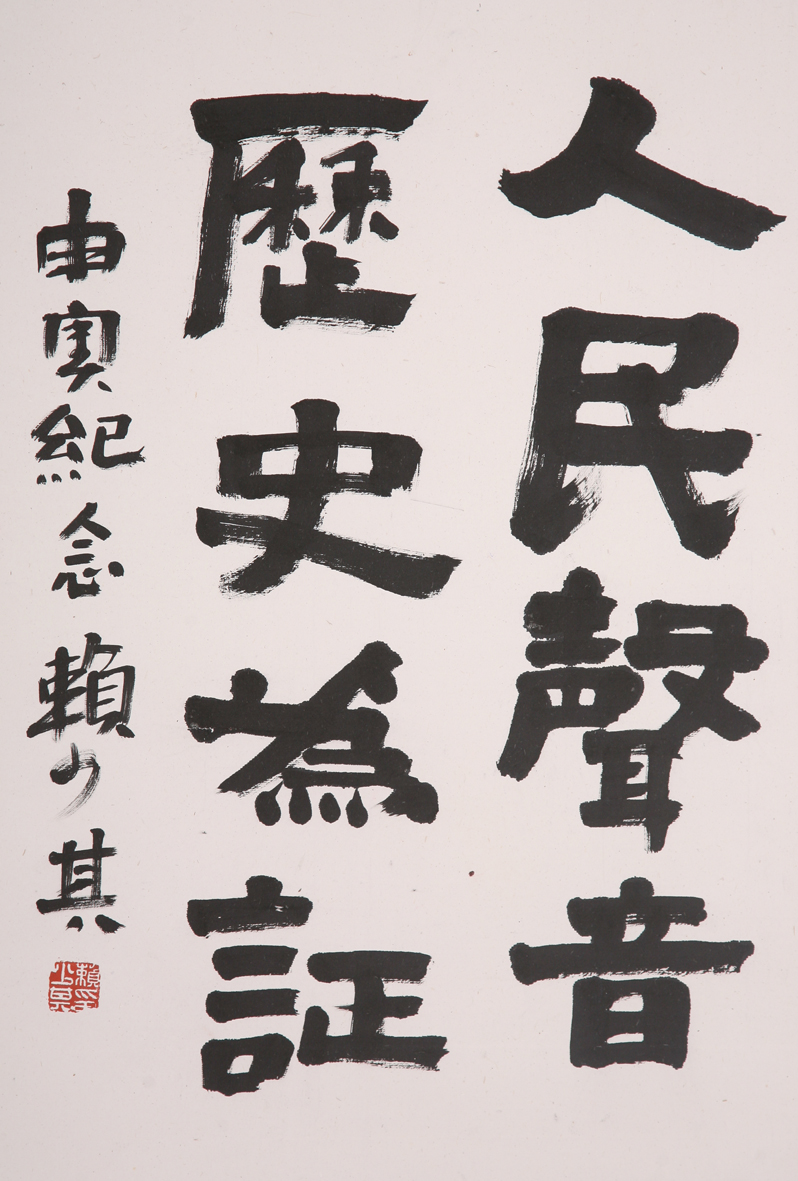 人民聲音
歷史為証
紀念 賴少其
賴少其印